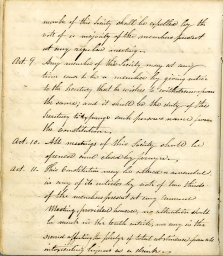 member of this Society shall be expelled by the
vote of a majority of the members present
at any regular meeting.
Art. 9. Any member of this Society may at any
time cease to be a member by giving notice
to the Secretary that he wishes to withdraw from
the same; and it shall be the duty of the
Secretary to expunge such persons name from
the Constitution.
Art. 10. All meetings of this Society should be
opened and closed by prayer.
Art. 11. This Constitution may be altered or amended
in any of its articles by vote of two thirds
of the members present at any annual
Meeting, provided however, no alteration shall
be made in the tenth article, nor any in the
second affecting the pledge of total abstinence from
intoxicating liquors as a drink.